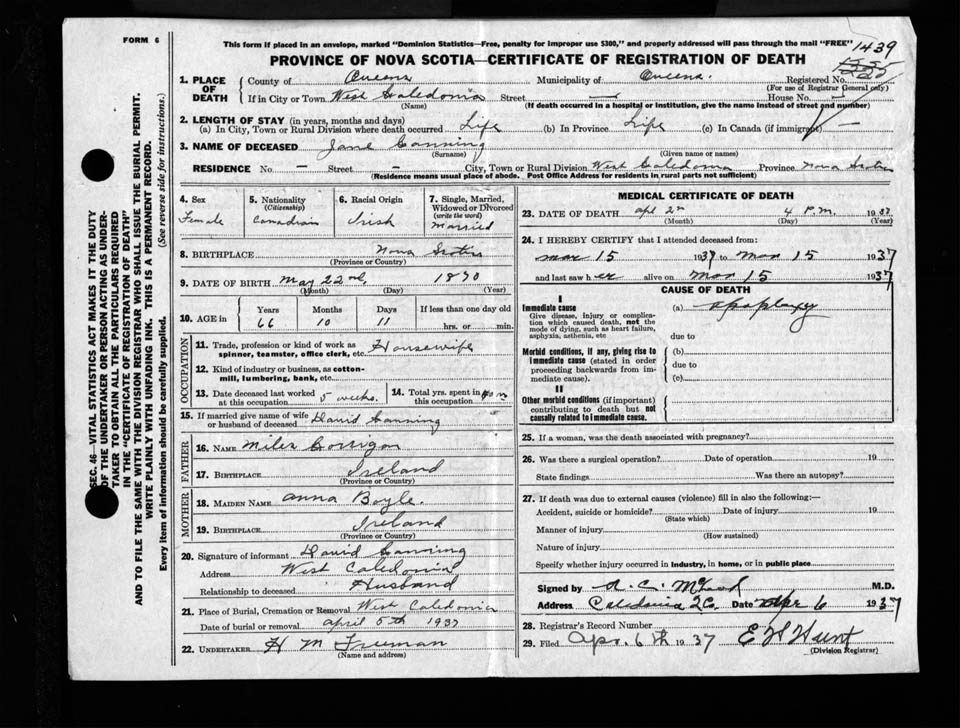 FORM 6
This form if placed in an envelope, marked "Dominion Statistics—Free, penalty for improper use $300," and properly addressed will pass through the mail "FREE"
1439
PROVINCE OF NOVA SCOTIA—CERTIFICATE OF REGISTRATION OF DEATH
1. PLACE OF DEATH
County of Queens Municipality of Queens. Registered No.
(For use of Registrar General only)
If in City or Town West Caledonia Street — House No. —
(Name) (If death occurred in a hospital or institution, give the name instead of street and number)
2. LENGTH OF STAY (in years, months and days)
(a) In City, Town or Rural Division where death occurred Life (b) In Province Life (c) In Canada (if immigrant) —
3. NAME OF DECEASED Jane Canning
(Surname) (Given name or names)
RESIDENCE No — Street — City, Town or Rural Division West Caledonia Province Nova Scotia
(Residence means usual place of abode. Post Office Address for residents in rural parts not sufficient)
4. Sex
Female
5. Nationality
(Citizenship)
Canadian
6. Racial Origin
Irish
7. Single, Married, Widowed or Divorced
(write the word)
Married
8. BIRTHPLACE Nova Scotia
(Province or Country)
9. DATE OF BIRTH May 22nd, 1870
(Month) (Day) (Year)
10. AGE in
Years Months Days If less than one day old
66 10 11 hrs. or min.
OCCUPATION
11. Trade, profession or kind of work as spinner, teamster, office clerk, etc. Housewife
12. Kind of industry or business, as cotton-mill, lumbering, bank, etc.
13. Date deceased last worked at this occupation 5 weeks.
14. Total yrs. spent in this occupation
15. If married give name of wife or husband of deceased David Canning
FATHER
16. NAME Miles Corrigan
17. BIRTHPLACE Ireland
(Province or Country)
MOTHER
18. MAIDEN NAME Anna Boyle.
19. BIRTHPLACE Ireland
(Province or Country)
20. Signature of informant David Canning
Address West Caledonia
Relationship to deceased Husband
21. Place of Burial, Cremation or Removal West Caledonia
Date of burial or removal April 5th 1937
22. UNDERTAKER H M Freeman
(Name and address)
MEDICAL CERTIFICATE OF DEATH
23. DATE OF DEATH Apr 2nd 4 P.M. 1937
(Month) (Day) (Year)
24. I HEREBY CERTIFY that I attended deceased from:
Mar 15 1937 to Mar 15 1937
and last saw her alive on Mar 15 1937
CAUSE OF DEATH
I
Immediate cause (a) apoplexy
Give disease, injury or complication which caused death, not the mode of dying, such as heart failure, asphyxia, asthenia, etc
due to
Morbid conditions, if any, giving rise to immediate cause (stated in order proceeding backwards from immediate cause).
(b)
due to
(c)
II
Other morbid conditions (if important) contributing to death but not causally related to immediate cause.
25. If a woman, was the death associated with pregnancy?
26. Was there a surgical operation? Date of operation 19
State findings Was there an autopsy?
27. If death was due to external causes (violence) fill in also the following:—
Accident, suicide or homicide? Date of injury 19
(State which)
Manner of injury
(How sustained)
Nature of injury
Specify whether injury occurred in industry, in home, or in public place
Signed by A. C. McLeod M.D.
Address Caledonia Q Co. Date Apr 6 1937
28. Registrar's Record Number
29. Filed Apr. 6th 1937 E W Hunt
(Division Registrar)
SEC. 46—VITAL STATISTICS ACT MAKES IT THE DUTY
OF THE UNDERTAKER OR PERSON ACTING AS UNDER-
TAKER TO OBTAIN ALL THE PARTICULARS REQUIRED
IN THE "CERTIFICATE OF REGISTRATION OF DEATH"
AND TO FILE THE SAME WITH THE DIVISION REGISTRAR WHO SHALL ISSUE THE BURIAL PERMIT.
WRITE PLAINLY WITH UNFADING INK. THIS IS A PERMANENT RECORD.
Every item of information should be carefully supplied. (See reverse side for instructions.)